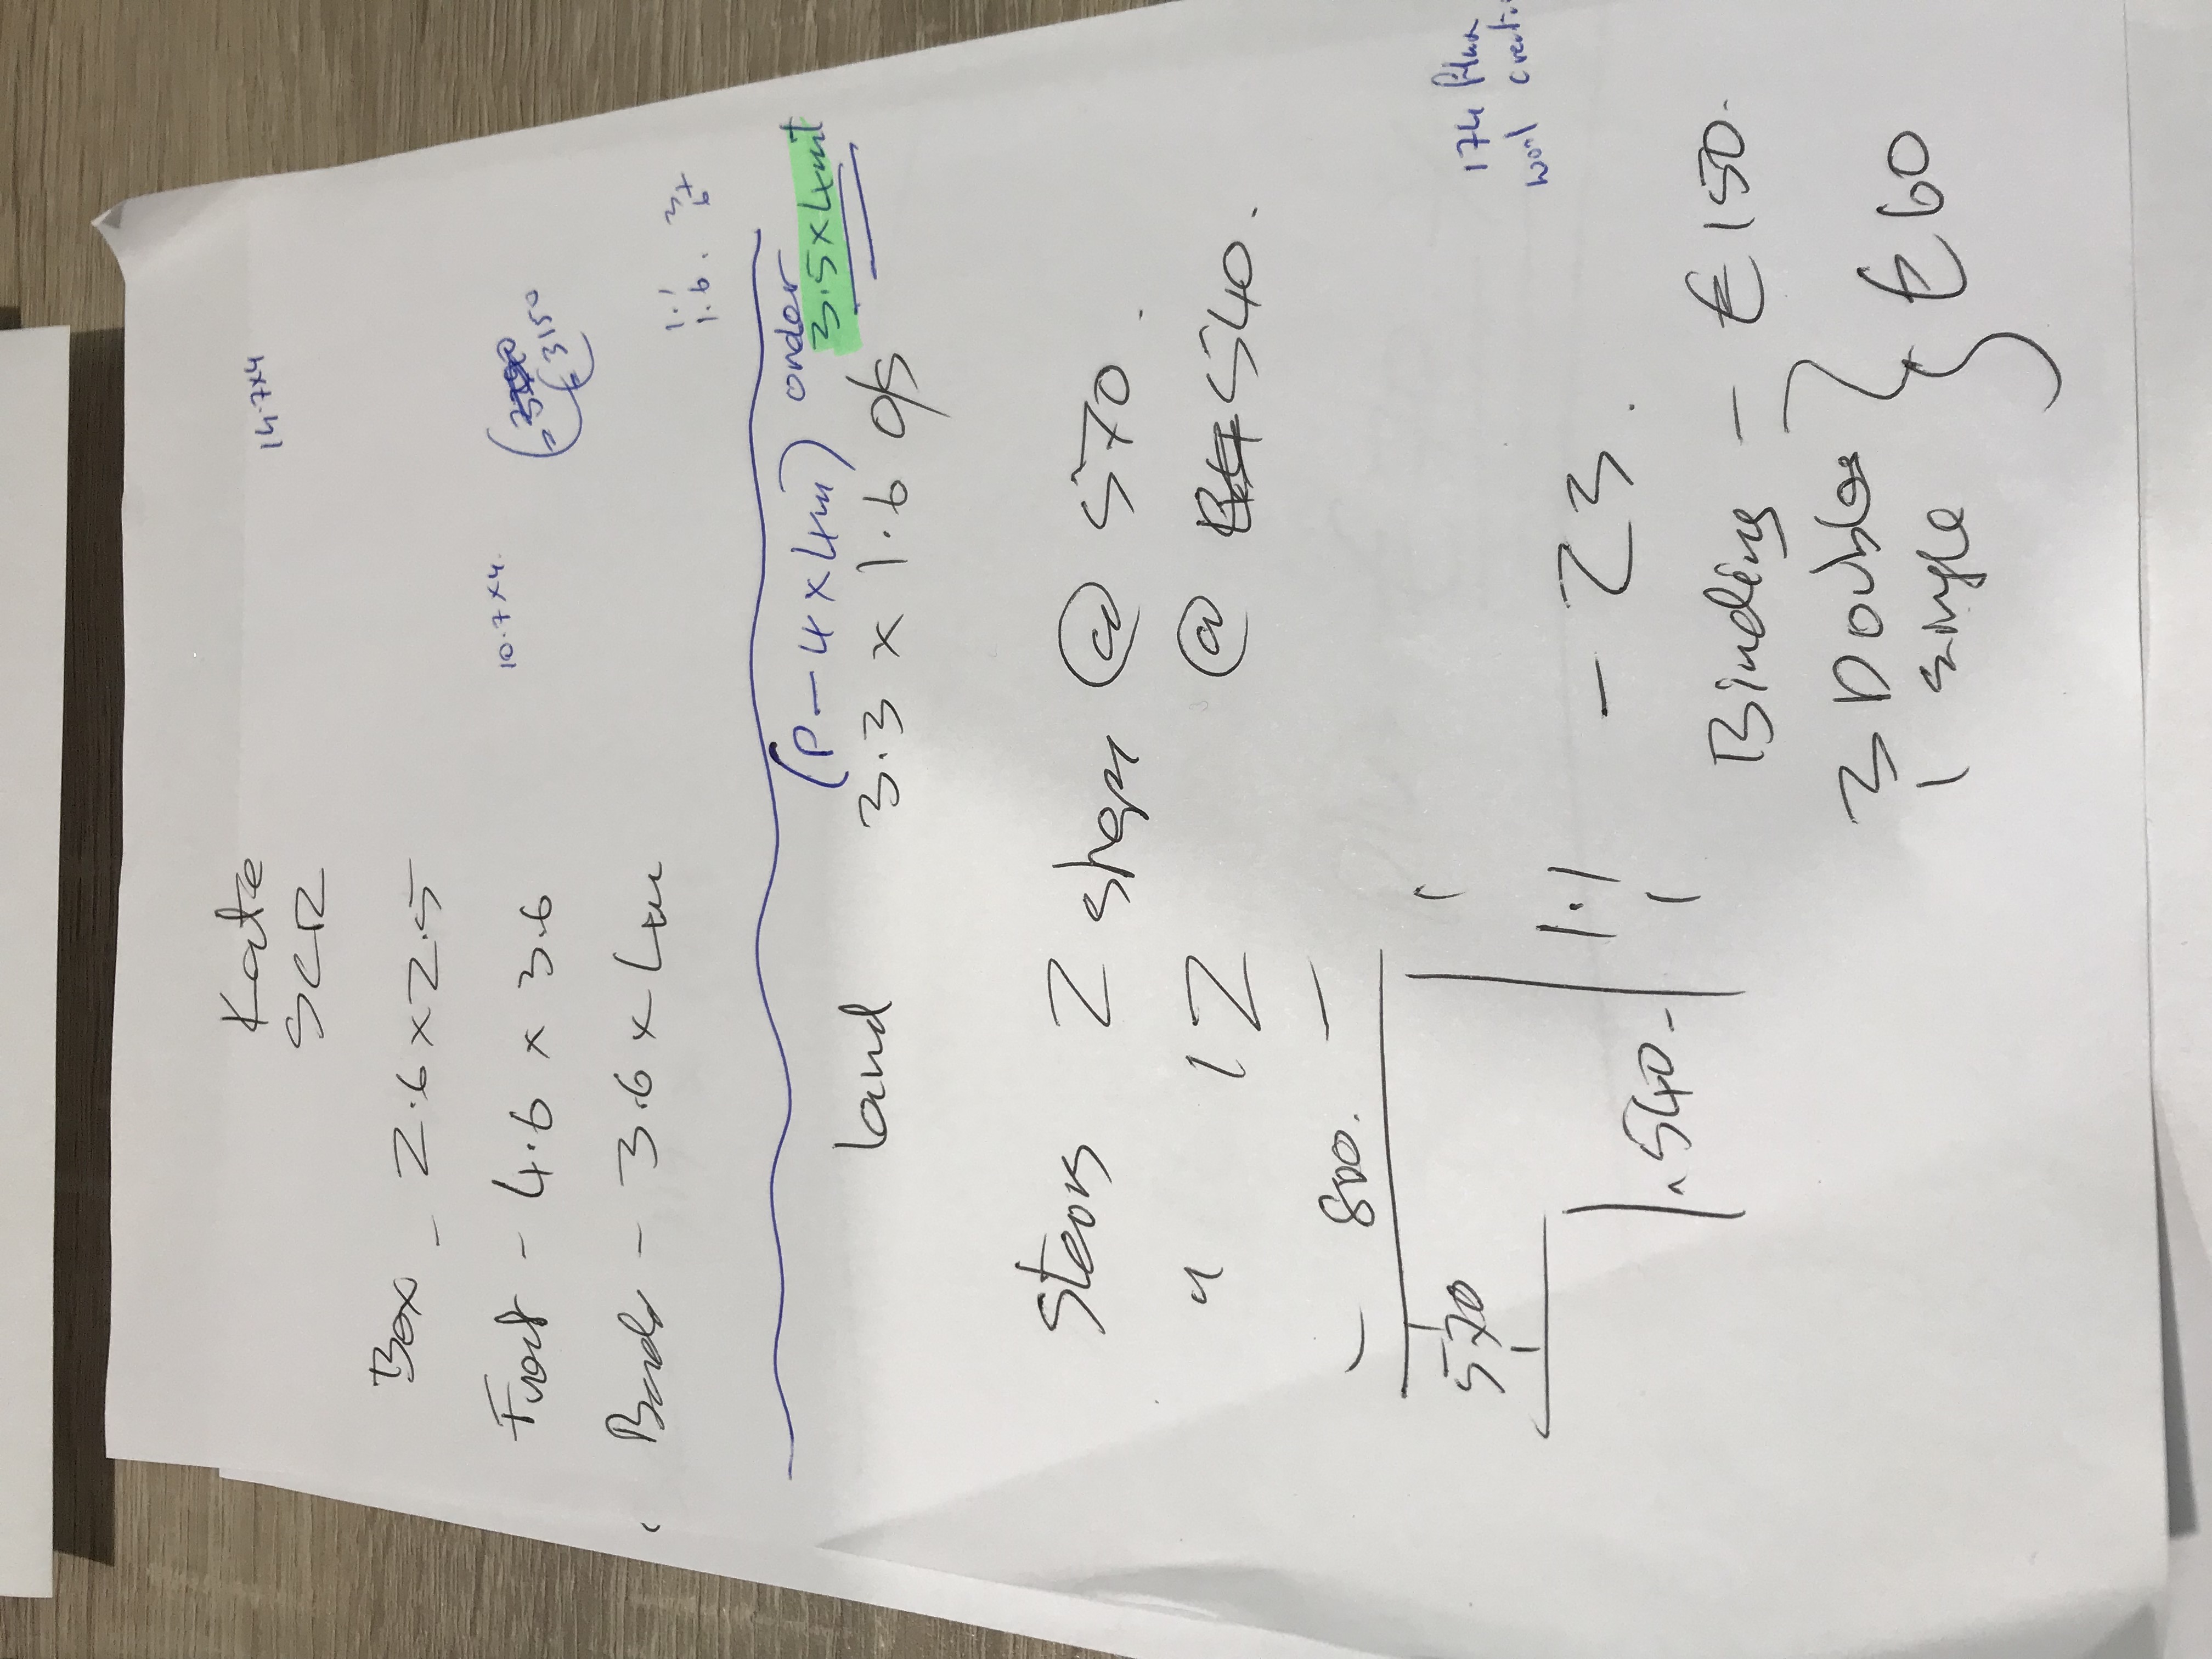 Kate
SCR
14.7x4
Box - 2.6 x 2.5
Front - 4.6 x 3.6
10.7 x 4.
(£3150)
- 3.6 x 4m
1.1
1.6.
(P - 4 x 4m) order
3.5 x 4mt
Land 3.3 x 1.6 o/s
Stairs 2 shape @ 570.
" 12 @ 540.
- 800. -
570
540
1.1
- 23.
174
wool
Binding - £150.
3 Doubles
1 single
£60